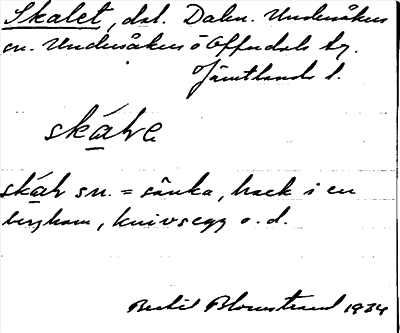 Skalet, dal. Dalen. Undersåkers
sn. Undersåkers o Offerdals tg.
Jämtlands l.
skálre
skálr sn. = sänka, hack i en
bergkam, knivsegg o.d.
Bertil Blomstrand 1934